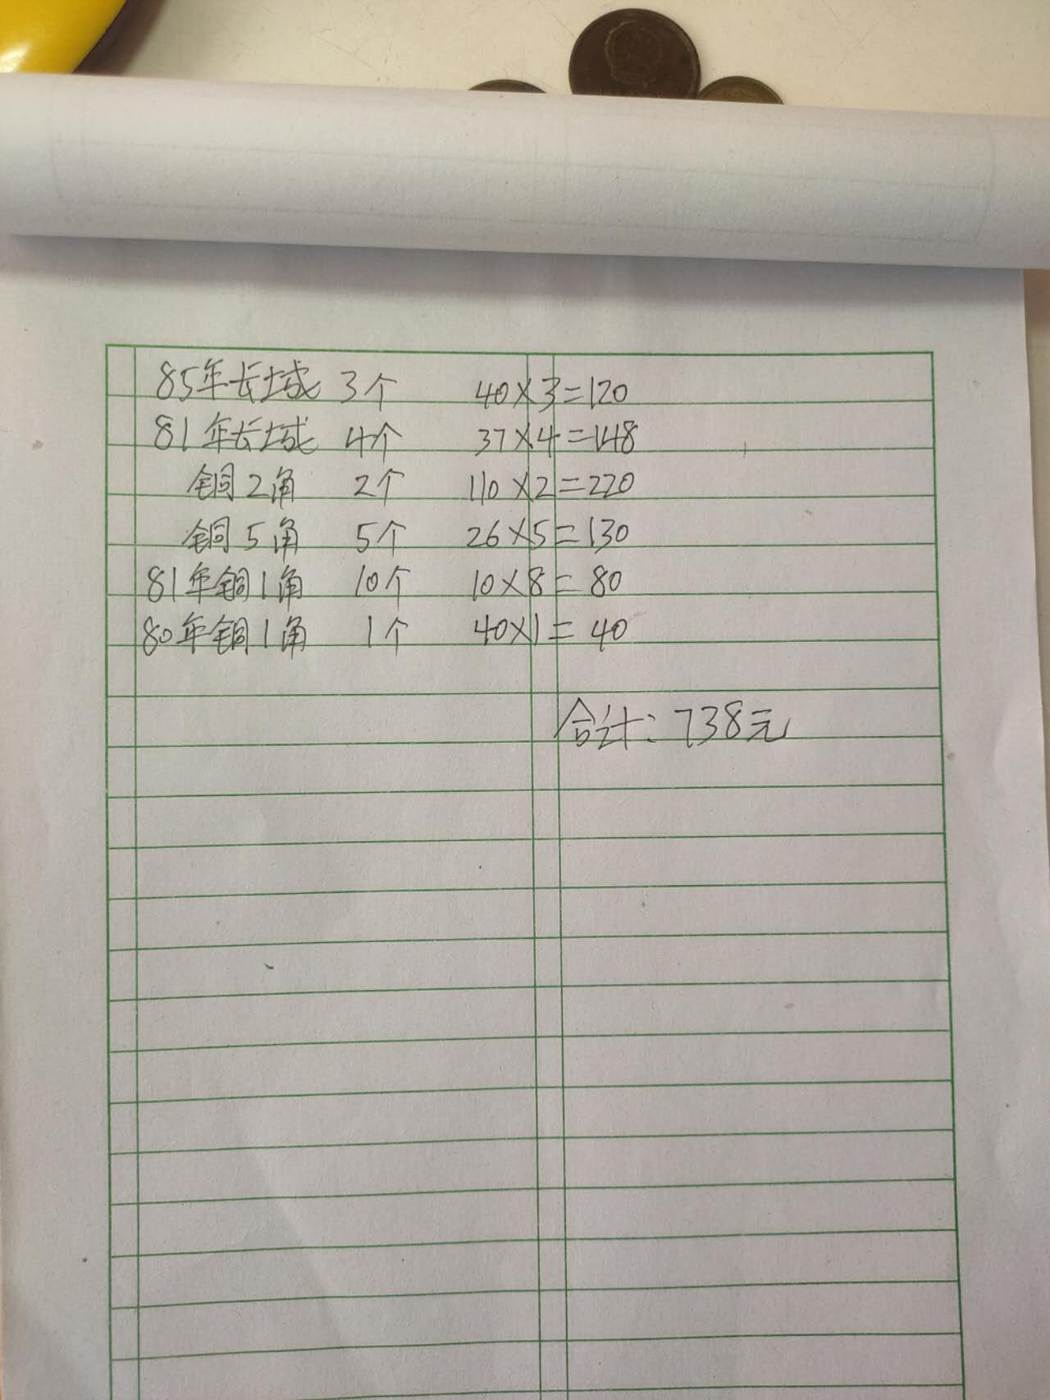 85年长城 3个 40×3=120
81年长城 4个 37×4=148
铜2角 2个 110×2=220
铜5角 5个 26×5=130
81年铜1角 10个 10×8=80
80年铜1角 1个 40×1=40
合计:738元